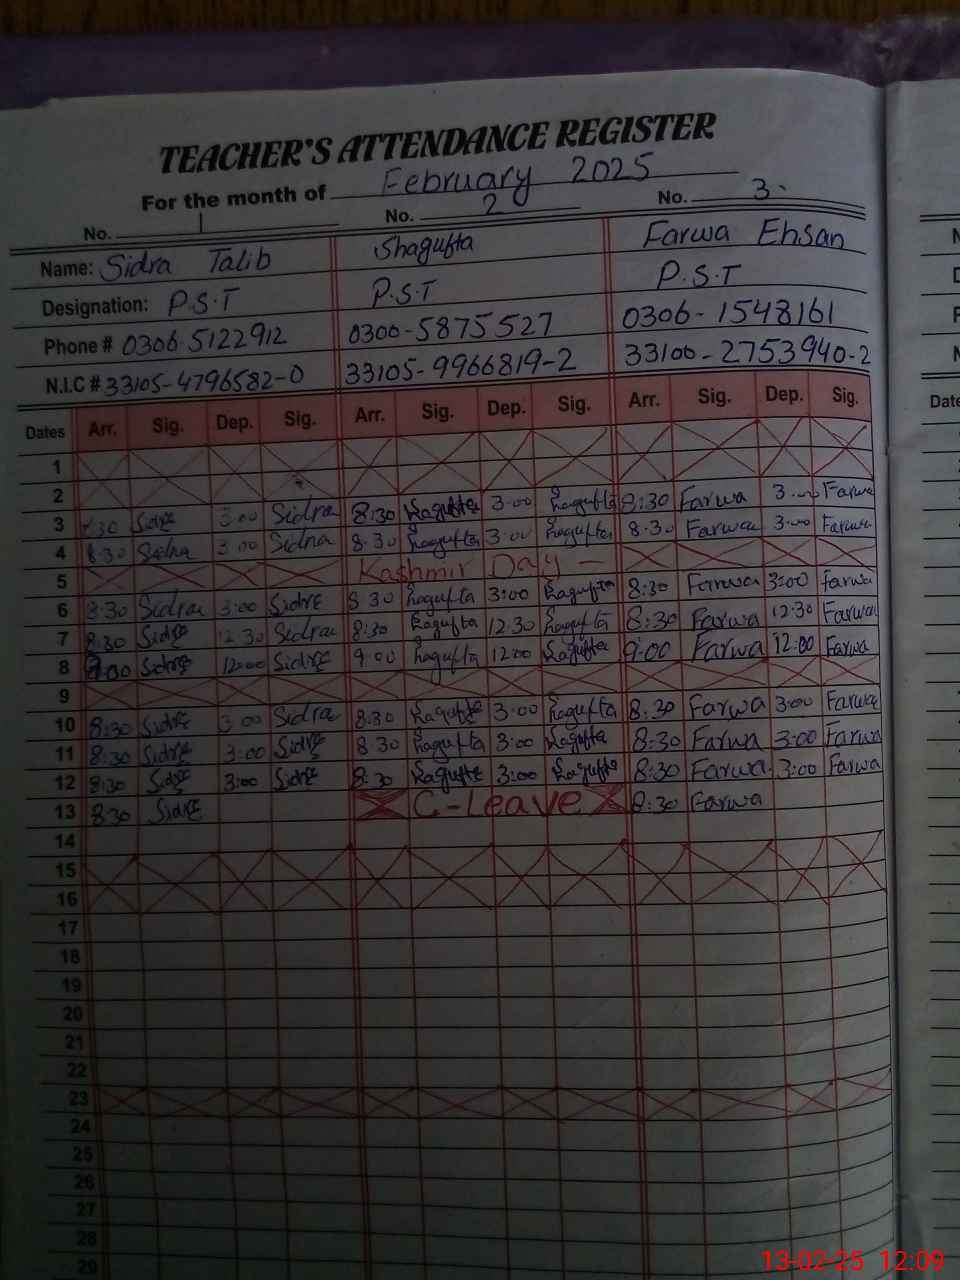 TEACHER'S ATTENDANCE REGISTER
For the month of February 2025
No. 1 No. 2 No. 3.
Name: Sidra Talib Shagufta Farwa Ehsan
Designation: P.S.T P.S.T P.S.T
Phone # 0306-5122912 0300-5875527 0306-1548161
N.I.C # 33105-4796582-0 33105-9966819-2 33100-2753940-2
Dates Arr. Sig. Dep. Sig. Arr. Sig. Dep. Sig. Arr. Sig. Dep. Sig.
1
2
3 8:30 Sidra 3:00 Sidra 8:30 Shagufta 3:00 Shagufta 8:30 Farwa 3:00 Farwa
4 8:30 Sidra 3:00 Sidra 8:30 Shagufta 3:00 Shagufta 8:30 Farwa 3:00 Farwa
5 Kashmir Day -
6 8:30 Sidra 3:00 Sidra 8:30 Shagufta 3:00 Shagufta 8:30 Farwa 3:00 Farwa
7 8:30 Sidra 12:30 Sidra 8:30 Shagufta 12:30 Shagufta 8:30 Farwa 12:30 Farwa
8 9:00 Sidra 12:00 Sidra 9:00 Shagufta 12:00 Shagufta 9:00 Farwa 12:00 Farwa
9
10 8:30 Sidra 3:00 Sidra 8:30 Shagufta 3:00 Shagufta 8:30 Farwa 3:00 Farwa
11 8:30 Sidra 3:00 Sidra 8:30 Shagufta 3:00 Shagufta 8:30 Farwa 3:00 Farwa
12 8:30 Sidra 3:00 Sidra 8:30 Shagufta 3:00 Shagufta 8:30 Farwa 3:00 Farwa
13 8:30 Sidra C-Leave 8:30 Farwa
14
15
16
17
18
19
20
21
22
23
24
25
26
27
28
29
Dates
13-02-25 12:09